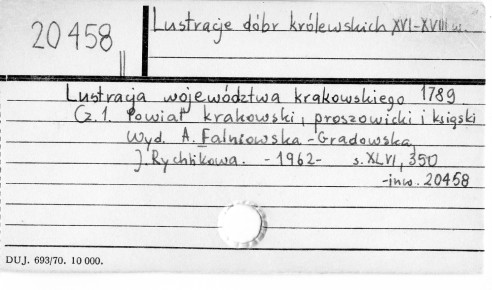 20458
||
Lustracje dóbr królewskich XVI-XVIII w.
Lustracja województwa krakowskiego 1789
Cz.1. Powiat krakowski, proszowicki i ksiąski
Wyd. A. Falniowska-Gradowska,
J. Rychlikowa. - 1962- s. XLVI, 350
-inw. 20458
DUJ. 693/70. 10 000.